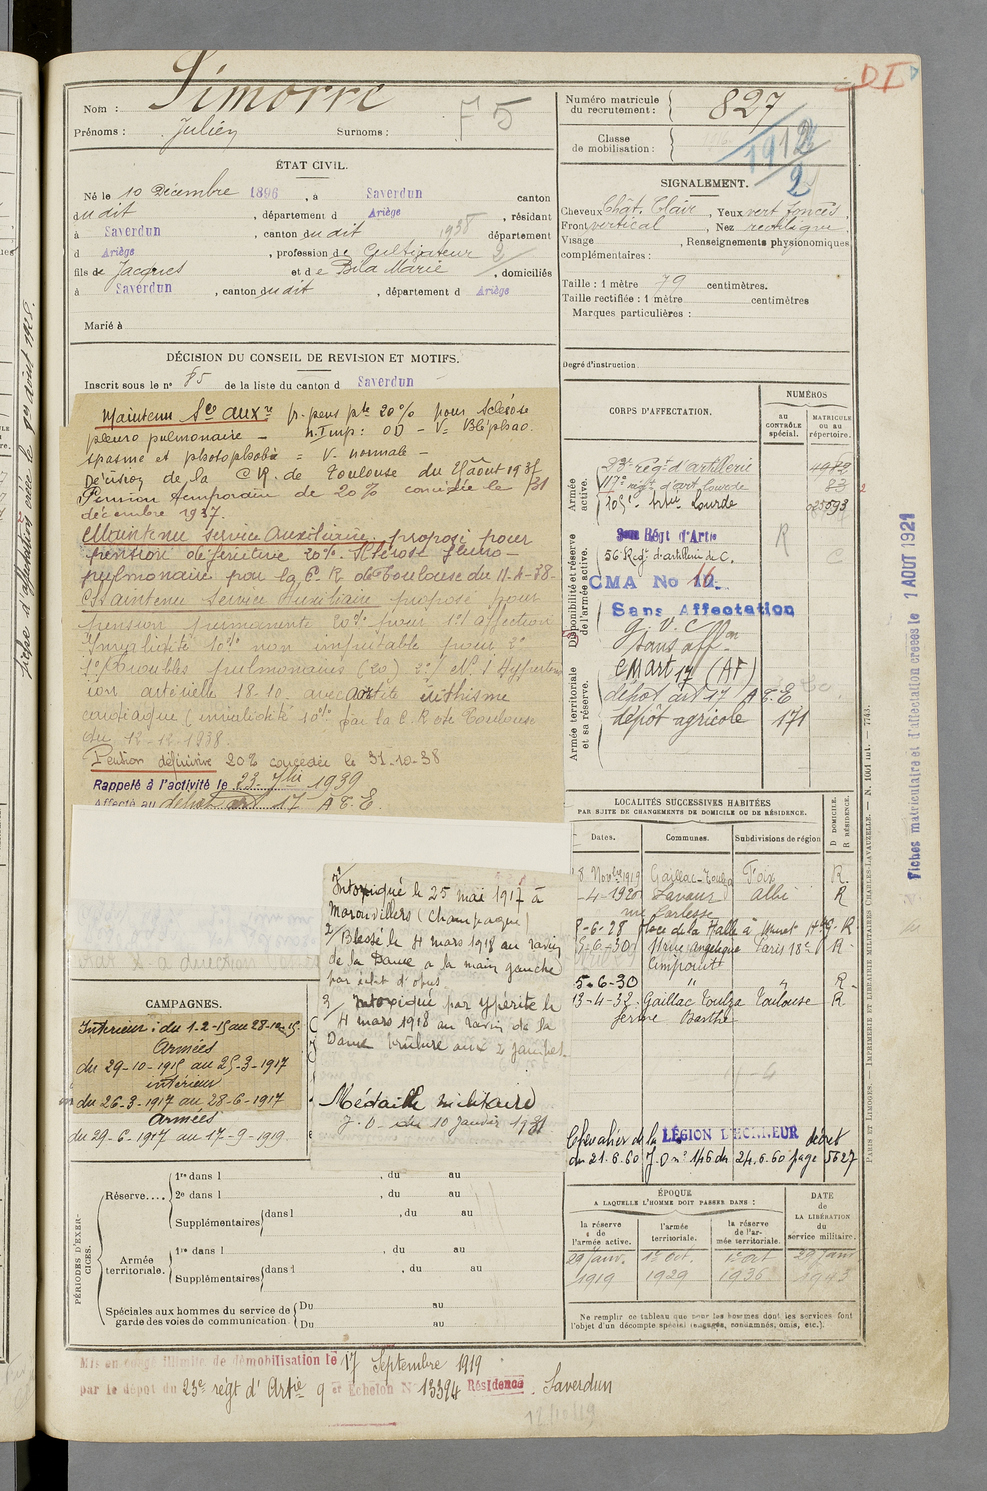 Nom : Simorre
Prénoms : Julien Surnoms : F5
ÉTAT CIVIL.
Né le 10 Décembre 1896, à Saverdun canton
du dit, département d Ariège, résidant
à Saverdun, canton du dit 1938 département
d Ariège, profession de Cultivateur 2
fils de Jacques et de Bila Marie, domiciliés
à Saverdun, canton du dit, département d Ariège
Marié à
DÉCISION DU CONSEIL DE REVISION ET MOTIFS.
Inscrit sous le n° 85 de la liste du canton d Saverdun
Maintenu Sce auxre pr. pens pte 20% pour Sclérose
pleuro pulmonaire – OD – V – Blépharo
spasme et photophobie = V. normale –
Décision de la C.R. de Toulouse du août 193
Pension temporaire de 20% concédée le 31
décembre 1937.
Maintenu service auxiliaire, proposé pour
pension définitive 20%. Sclérose pleuro-
pulmonaire par la C. R de Toulouse du 11-4-38-
Maintenu Service Auxiliaire proposé pour
pension permanente 20% pour 1° affection
Invalidité 10% non imputable pour 2°
1° Troubles pulmonaires (20) 2°/ Hyperten
ion artérielle 18-10 avec éréthisme
cardiaque (invalidité 10% par la C. R de Toulouse
du 12-12-1938.
Pention définivive 20% concedée le 31-10-38
Rappelé à l'activité le 23-7bre 1939
Affecté au dépôt art 17 A E.E.
1°/
Intoxiqué le 25 mai 1917 à
Moronvillers (Champagne)
2/ Blessé le 4 mars 1918 au ravin
de la Dame a la main gauche
par éclat d'obus
3/ Intoxiqué par ypérite le
4 mars 1918 au ravin de la
Dame brûlure aux 2 jambes.
Médaille militaire
J.O. du 10 janvier 1931
CAMPAGNES.
Intérieur : du 1-2-15 au 28-10-15
Armées
du 29-10-1915 au 25-3-1917
intérieur
du 26-3-1917 au 28-6-1917
Armées
du 29-6-1917 au 17-9-1919.
PÉRIODES D'EXERCICES.
Réserve....
1re dans l , du au
2e dans l , du au
Supplémentaires dans l , du au
au
Armée territoriale.
1re dans l , du au
Supplémentaires dans l , du au
au
Spéciales aux hommes du service de garde des voies de communication
Du au
Du au
Mis en congé illimité de démobilisation le 17 Septembre 1919
par le dépôt du 23e régt d'Artie 9 er Echelon N° 13394 Résidence Saverdun
12/10/19
DI
Numéro matricule du recrutement : 827
Classe de mobilisation : 1912
2
SIGNALEMENT.
Cheveux Chât. Clair, Yeux vert foncés,
Front vertical, Nez rectiligne.
Visage , Renseignements physionomiques
complémentaires :
Taille : 1 mètre 79 centimètres.
Taille rectifiée : 1 mètre centimètres
Marques particulières :
Degré d'instruction
CORPS D'AFFECTATION.
NUMÉROS
au CONTRÔLE spécial.
MATRICULE ou au répertoire.
Armée active.
23e régt d'artillerie 4989
117e régt d'art lourde 83
105e artie Lourde 025593
Disponibilité et réserve de l'armée active.
Régt d'Artie R
56 Régt d'artillerie de C. C
CMA No 16
Sans Affectation
G.V.C
Sans affon
Armée territoriale et sa réserve.
CM Art 17 (AF)
dépôt art 17 A E.E
dépôt agricole 171
LOCALITÉS SUCCESSIVES HABITÉES
PAR SUITE DE CHANGEMENTS DE DOMICILE OU DE RÉSIDENCE.
Dates. Communes. Subdivisions de région D DOMICILE. R RÉSIDENCE.
8 Novbre 1919 Gaillac-Toulza Foix R.
-4-1920 Lavaur Albi R
8-6-28 Place de la Halle à Muret Hte G. R.
6-6-30 11 rue Angélique Paris 18e R
5-6-30 " " R
13-4-32 Gaillac Toulza Toulouse R
ferme Barthe
11-4
Chevalier de la LÉGION D'HONNEUR décret
du 21.6.60 J.O n° 146 du 24.6.60 page 5627
ÉPOQUE
A LAQUELLE L'HOMME DOIT PASSER DANS :
la réserve de l'armée active.
l'armée territoriale.
la réserve de l'armée territoriale.
DATE DE LA LIBÉRATION du service militaire.
29 Janv. 1er Oct. 1er Oct 29 Janv
1919 1929 1936 1943
Ne remplir ce tableau que pour les hommes dont les services font
l'objet d'un décompte spécial (engagés, condamnés, omis, etc.).
Fiches matriculaire et d'affectation créées le 1 AOUT 1921
PARIS ET LIMOGES. — IMPRIMERIE ET LIBRAIRIE MILITAIRES CHARLES-LAVAUZELLE. — N. 1001 mt. — 7743.